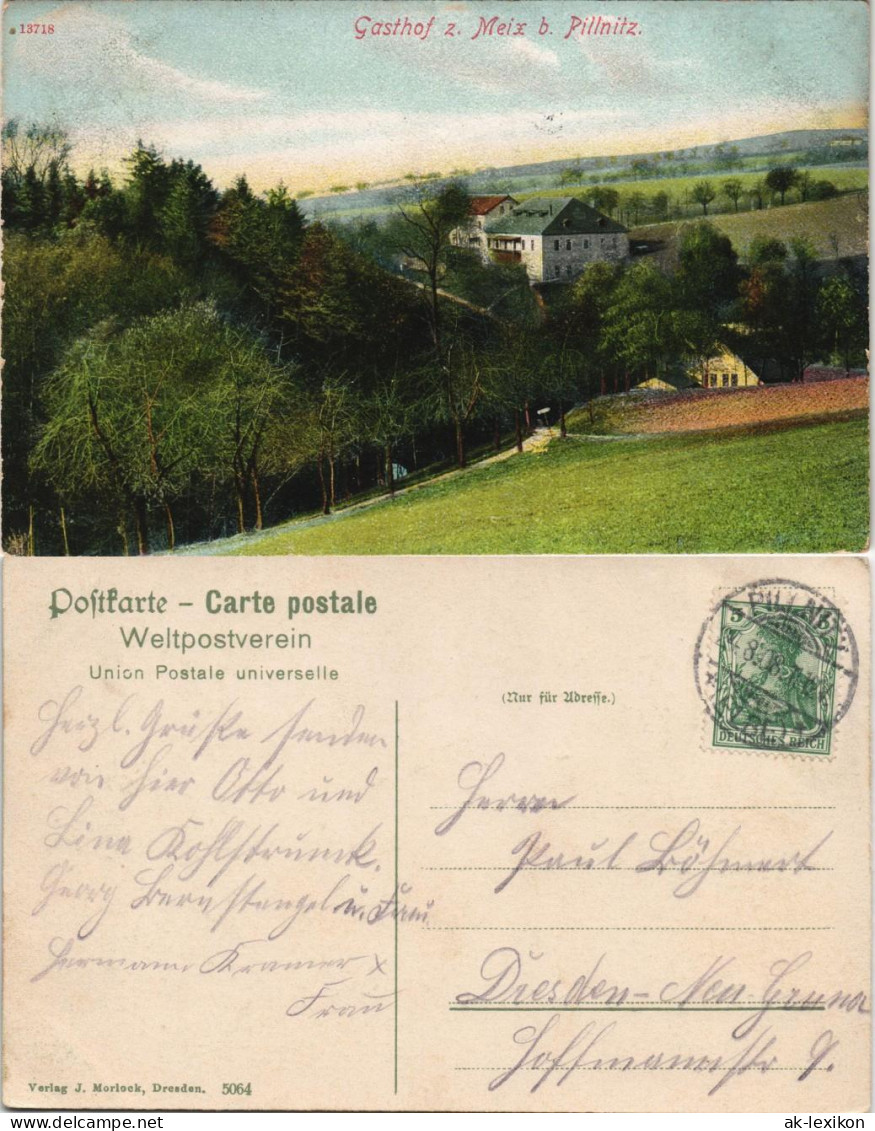 13718
Gasthof z. Meix b. Pillnitz.
Postkarte – Carte postale
Weltpostverein
Union Postale universelle
(Nur für Adresse.)
PILLNITZ
DEUTSCHES REICH
Herzl. Grüße senden
von hier Otto und
Lina Kohlstrunk.
Georg Bernstengel u. Frau
Hermann Kramer x
Frau
Herrn
Paul Böhmert
Dresden-Neu Gruna
Hoffmannstr 9.
Verlag J. Morlock, Dresden. 5064
www.delcampe.net
ak-lexikon